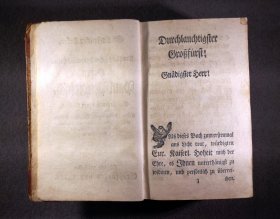 Durchlauchtigster
Großfürst,
Gnädigster Herr!
Als dieses Buch zum erstenmal
ans Licht trat, würdigten
Eur. Kaiserl. Hoheit mich der
Ehre, es Ihnen unterthänigst zu
widmen, und persönlich zu überrei-
chen.